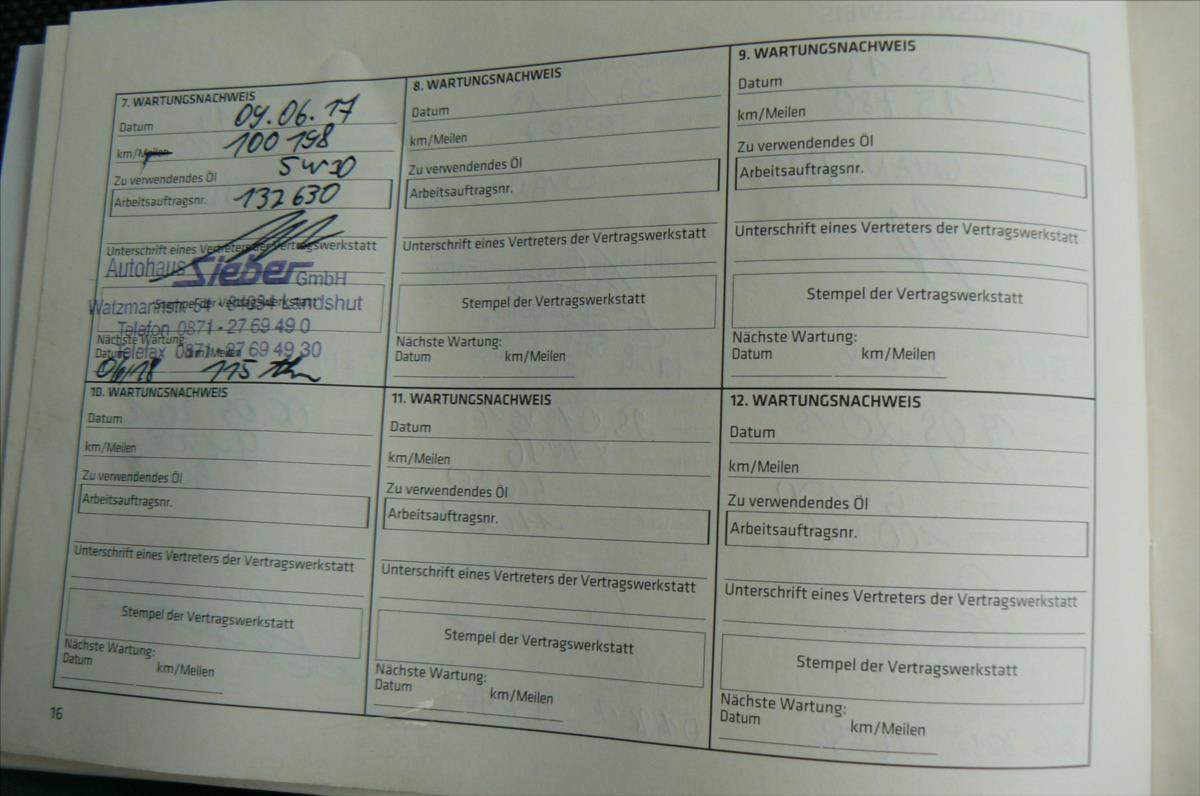 7. WARTUNGSNACHWEIS
Datum 09.06.17
km/Meilen 100 198
Zu verwendendes Öl 5W30
Arbeitsauftragsnr. 132630
Unterschrift eines Vertreters der Vertragswerkstatt
Autohaus Sieber GmbH
Stempel der Vertragswerkstatt
Watzmannstr. 54 - 84034 Landshut
Telefon 0871 - 27 69 49 0
Nächste Wartung:
Telefax 0871 - 27 69 49 30
Datum km/Meilen
06/18 115
8. WARTUNGSNACHWEIS
Datum
km/Meilen
Zu verwendendes Öl
Arbeitsauftragsnr.
Unterschrift eines Vertreters der Vertragswerkstatt
Stempel der Vertragswerkstatt
Nächste Wartung:
Datum km/Meilen
9. WARTUNGSNACHWEIS
Datum
km/Meilen
Zu verwendendes Öl
Arbeitsauftragsnr.
Unterschrift eines Vertreters der Vertragswerkstatt
Stempel der Vertragswerkstatt
Nächste Wartung:
Datum km/Meilen
10. WARTUNGSNACHWEIS
Datum
km/Meilen
Zu verwendendes Öl
Arbeitsauftragsnr.
Unterschrift eines Vertreters der Vertragswerkstatt
Stempel der Vertragswerkstatt
Nächste Wartung:
Datum km/Meilen
11. WARTUNGSNACHWEIS
Datum
km/Meilen
Zu verwendendes Öl
Arbeitsauftragsnr.
Unterschrift eines Vertreters der Vertragswerkstatt
Stempel der Vertragswerkstatt
Nächste Wartung:
Datum km/Meilen
12. WARTUNGSNACHWEIS
Datum
km/Meilen
Zu verwendendes Öl
Arbeitsauftragsnr.
Unterschrift eines Vertreters der Vertragswerkstatt
Stempel der Vertragswerkstatt
Nächste Wartung:
Datum km/Meilen
16